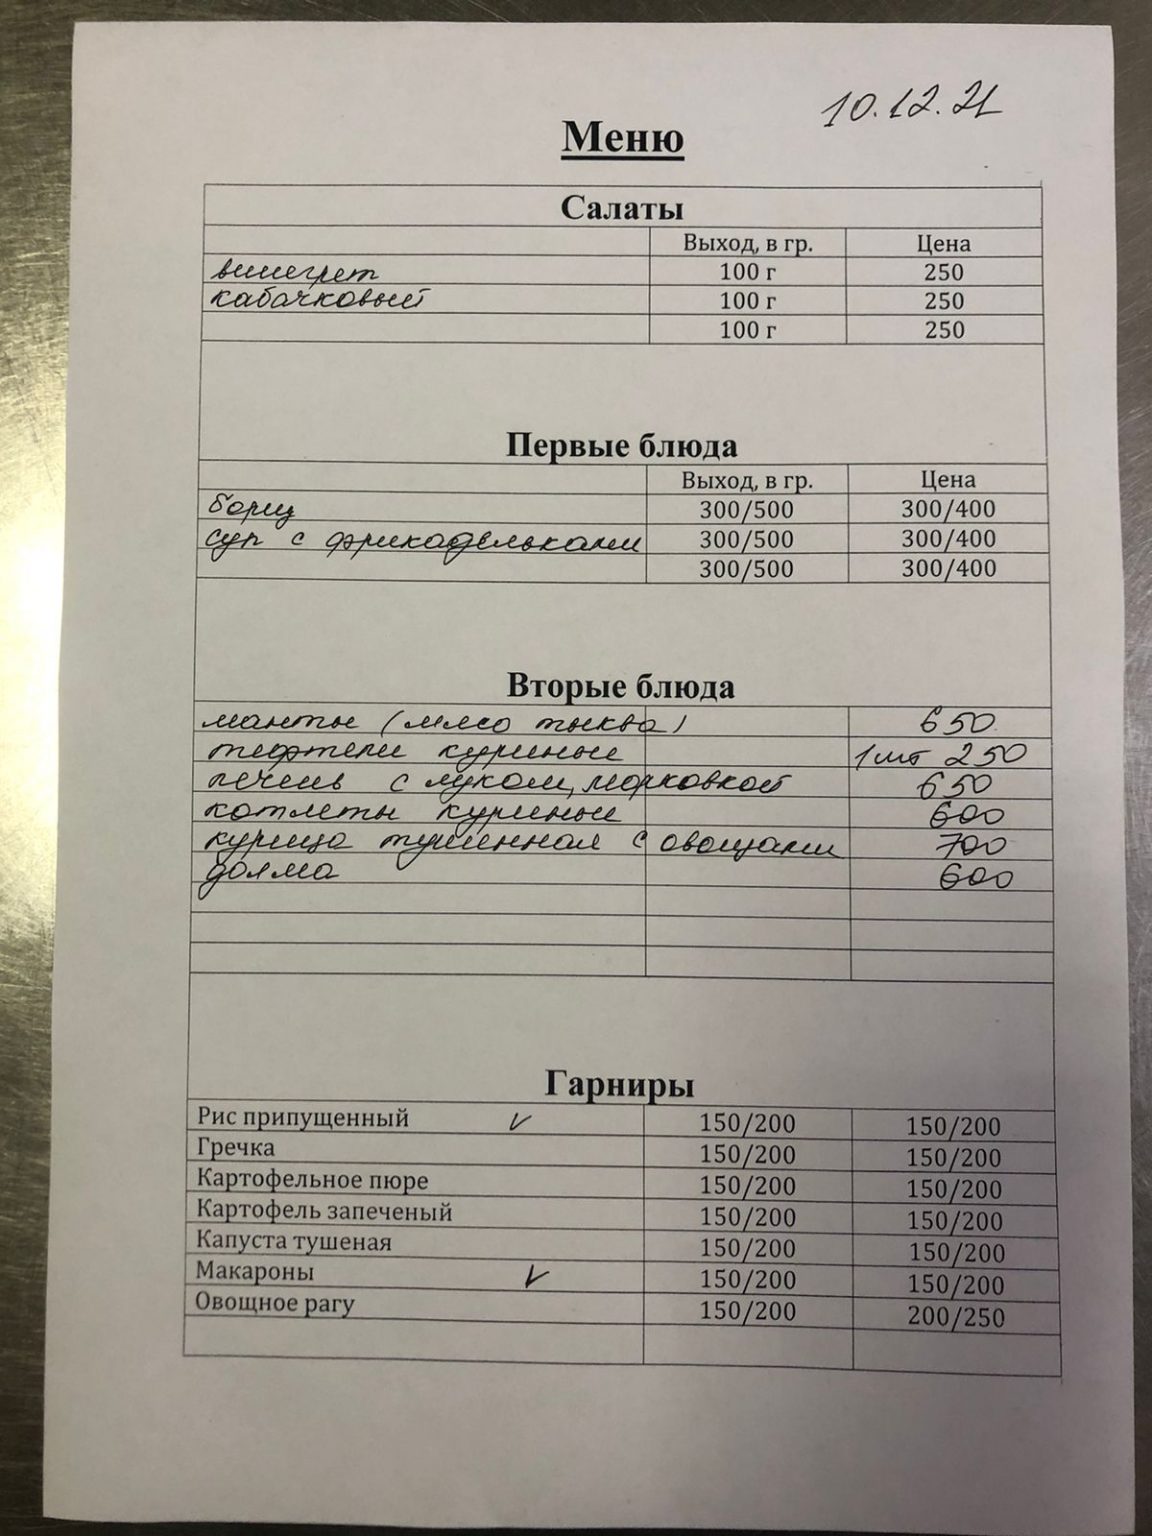 10.12.21
Меню
Салаты
Выход, в гр. Цена
винегрет 100 г 250
кабачковый 100 г 250
100 г 250
Первые блюда
Выход, в гр. Цена
борщ 300/500 300/400
суп с фрикадельками 300/500 300/400
300/500 300/400
Вторые блюда
манты (мясо тыква) 650
тефтели куриные 1 шт 250
печень с луком, морковкой 650
котлеты куриные 600
курица тушенная с овощами 700
долма 600
Гарниры
Рис припущенный ✓ 150/200 150/200
Гречка 150/200 150/200
Картофельное пюре 150/200 150/200
Картофель запеченый 150/200 150/200
Капуста тушеная 150/200 150/200
Макароны ✓ 150/200 150/200
Овощное рагу 150/200 200/250